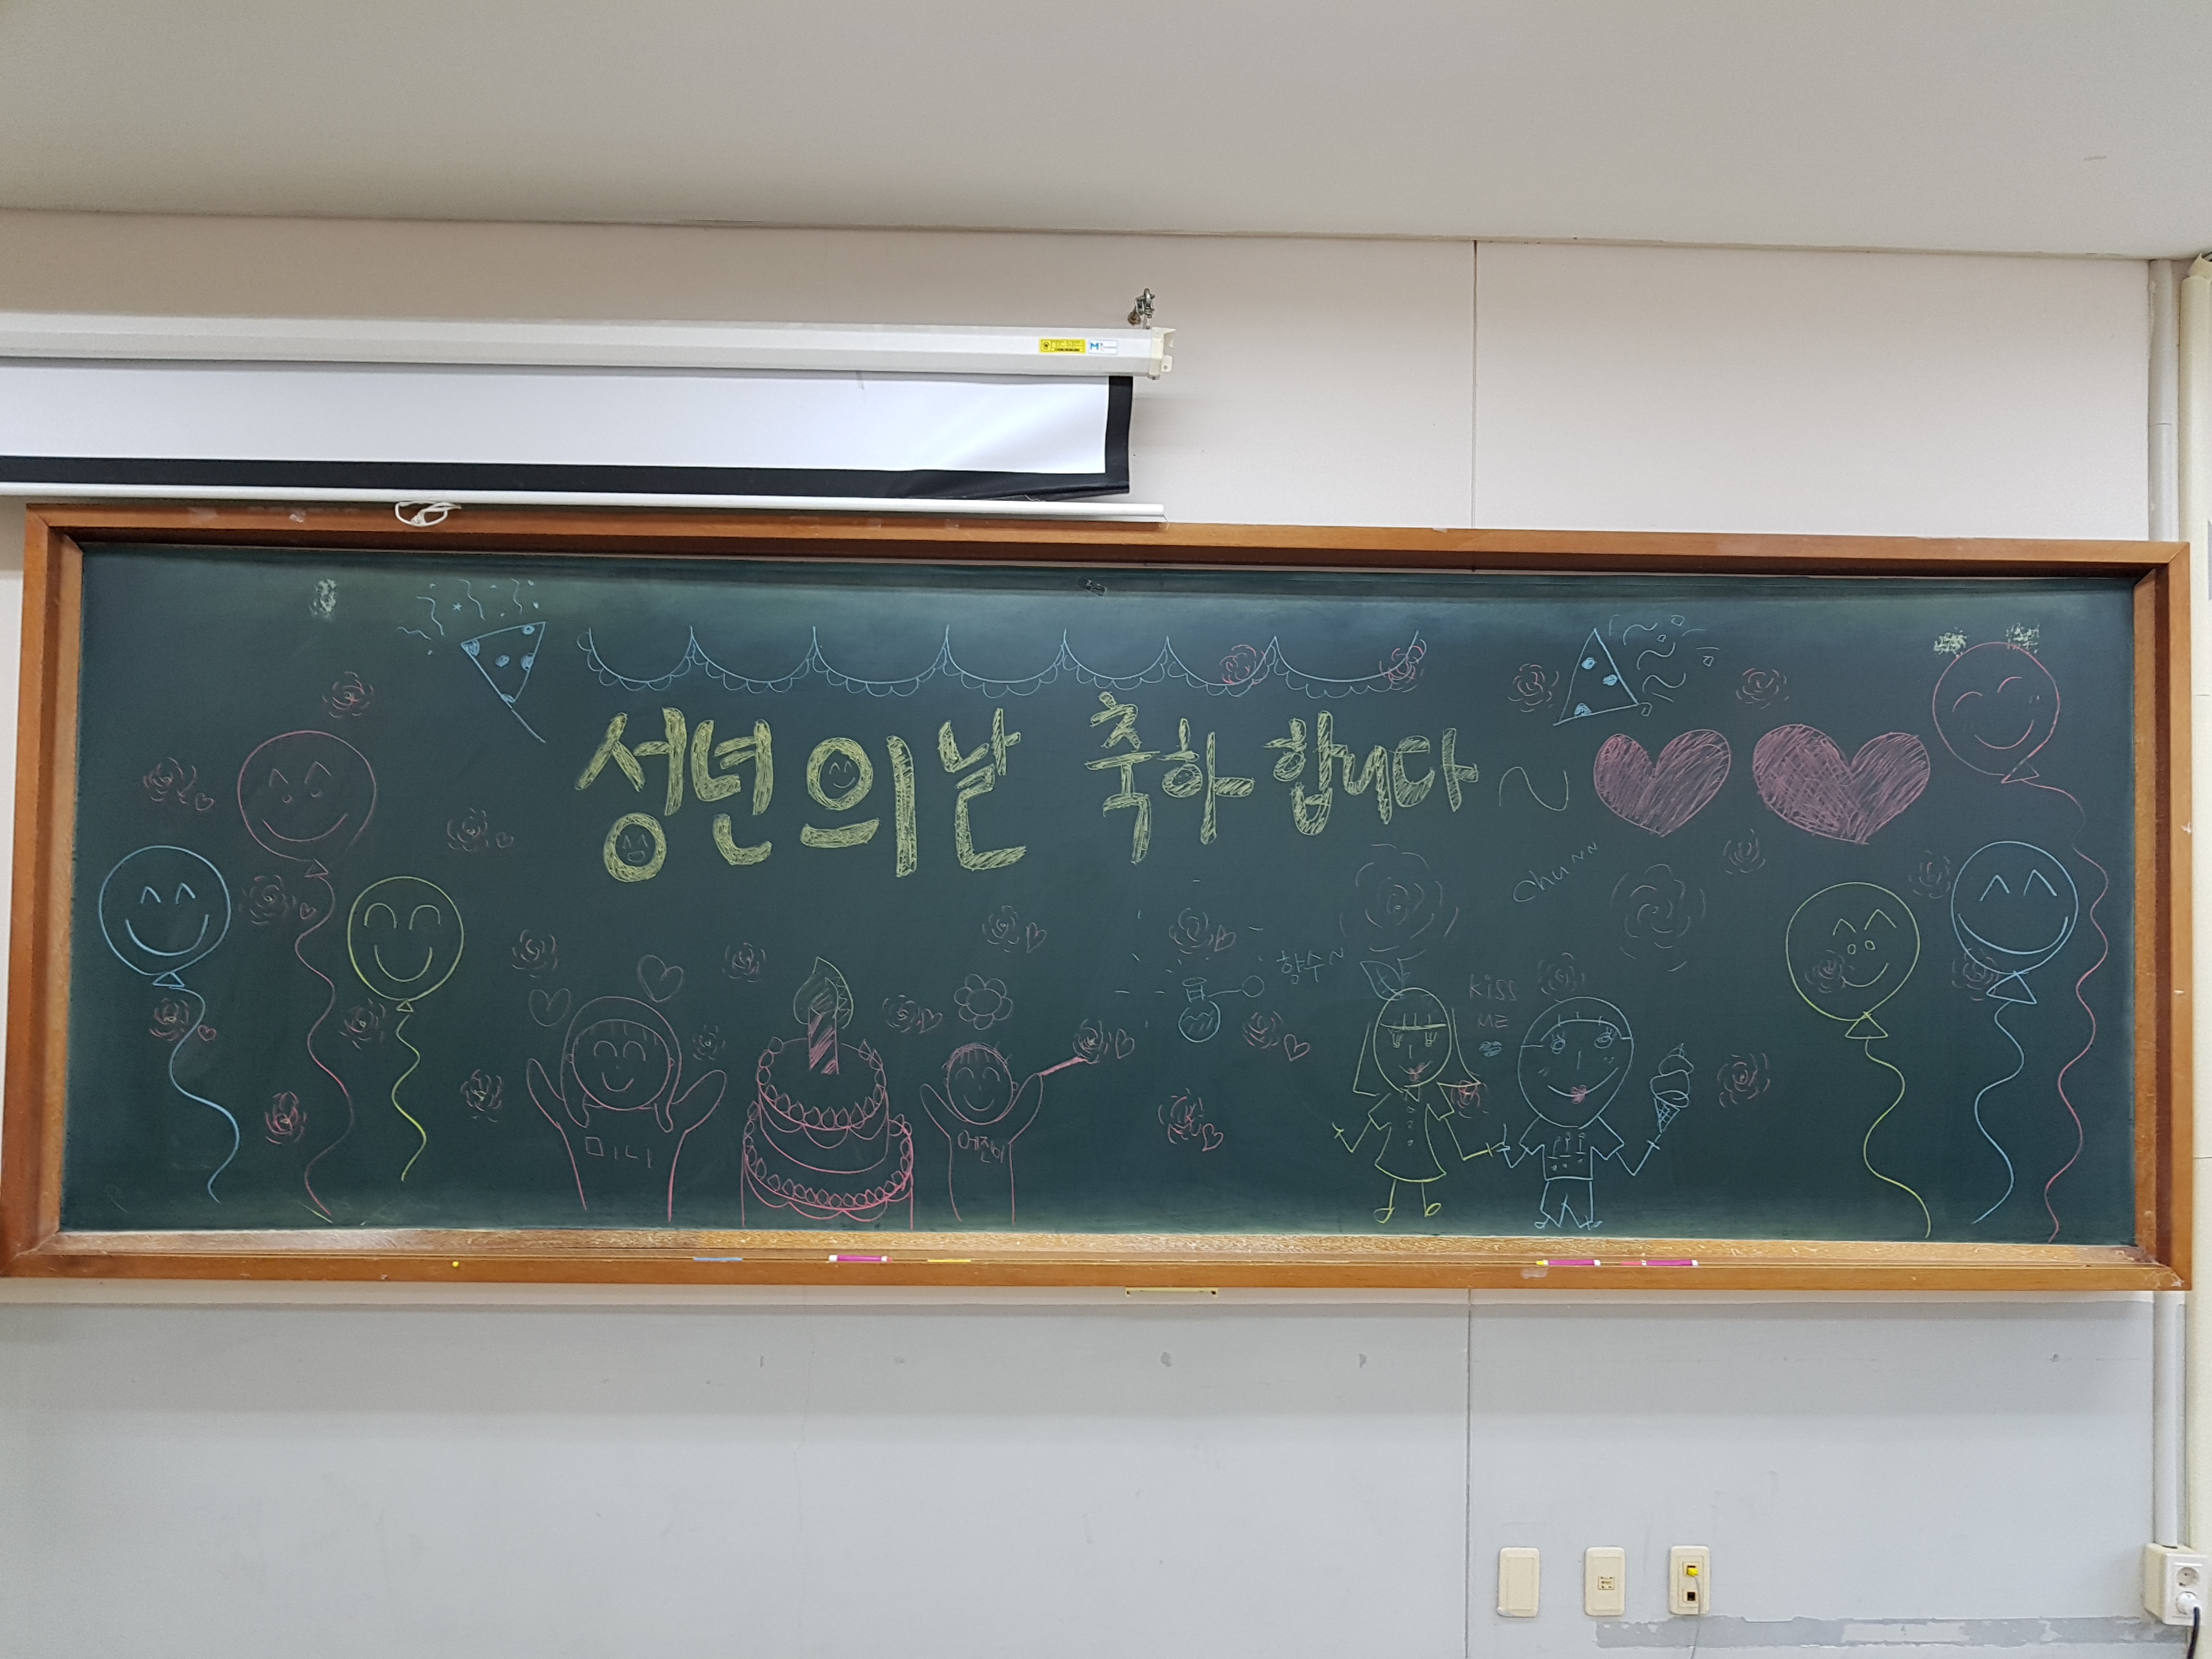 성년의날 축하합니다~
chu~~
향수~
kiss
ME
미니
예진이